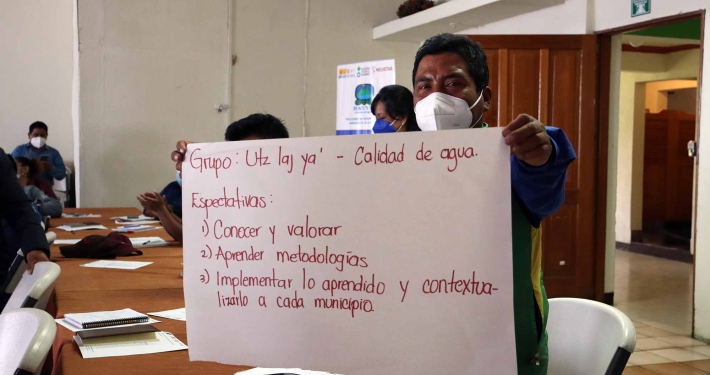 Grupo: Utz laj ya' - Calidad de agua.
Espectativas:
1) Conocer y valorar
2) Aprender metodologías
3) Implementar lo aprendido y contextua-
lizarlo a cada municipio.